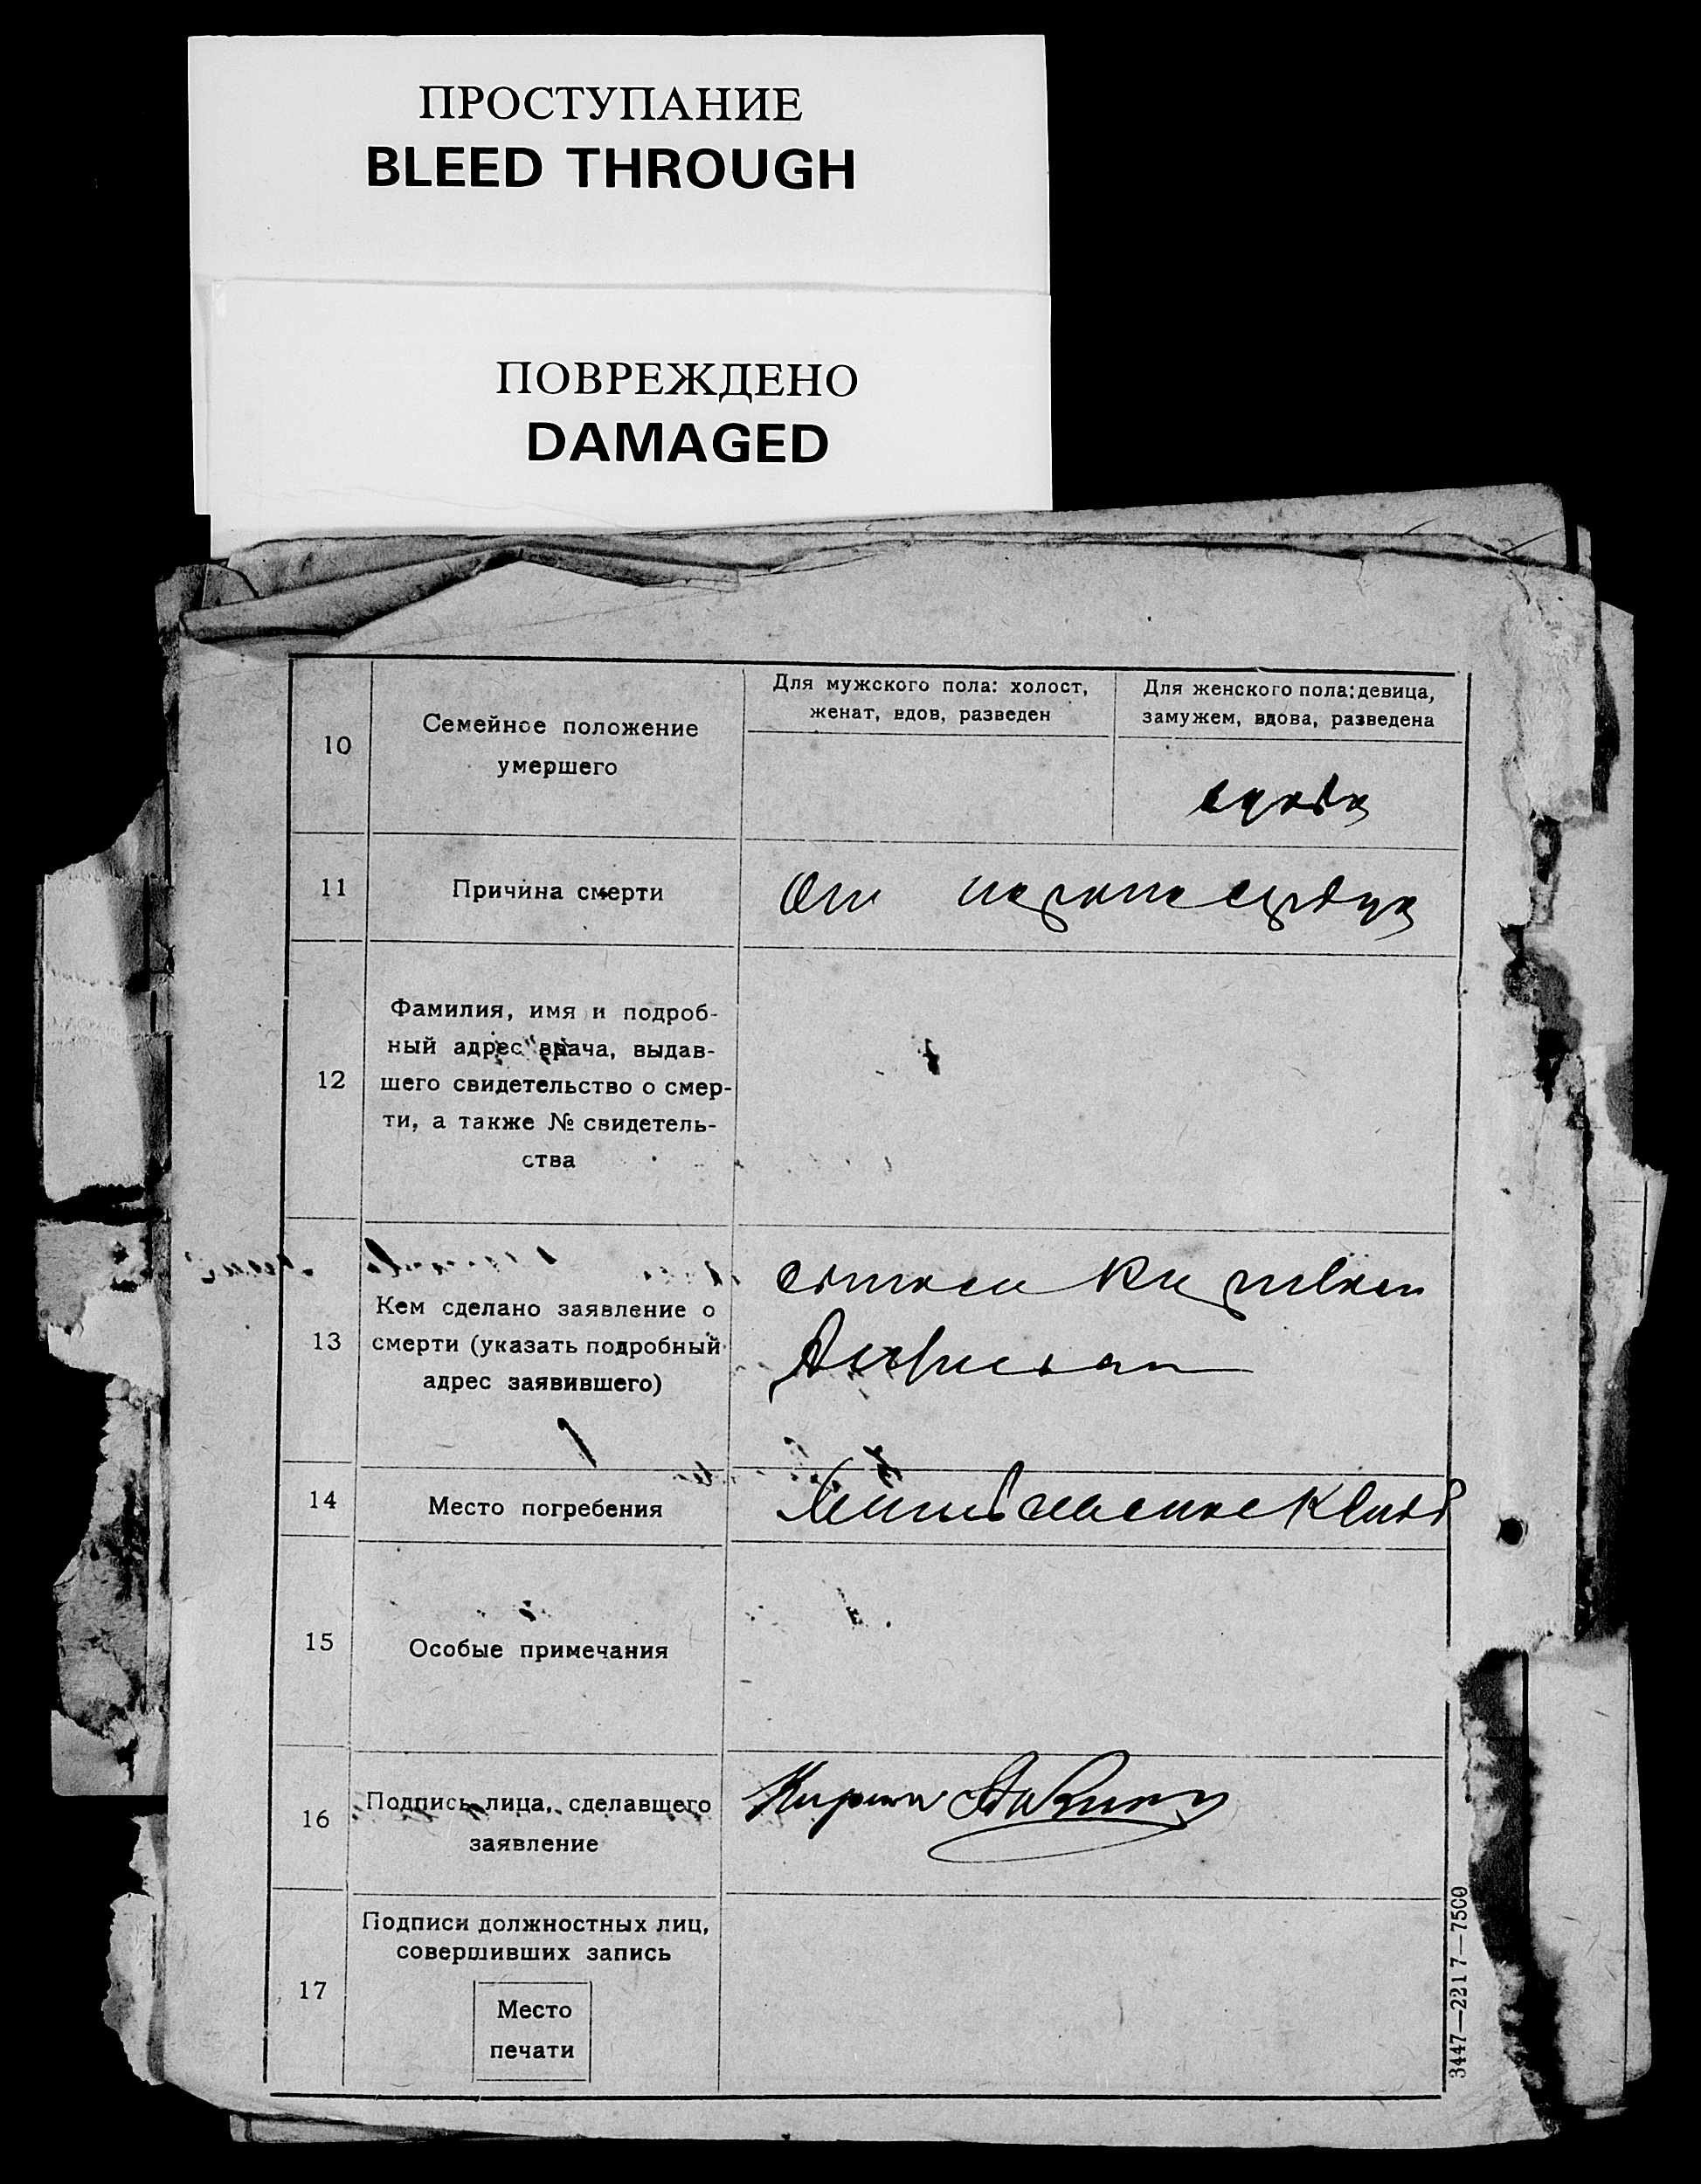 ПРОСТУПАНИЕ
BLEED THROUGH
ПОВРЕЖДЕНО
DAMAGED
10
Семейное положение
умершего
Для мужского пола: холост,
женат, вдов, разведен
Для женского пола: девица,
замужем, вдова, разведена
вдова
11
Причина смерти
От
12
Фамилия, имя и подроб-
ный адрес врача, выдав-
шего свидетельство о смер-
ти, а также № свидетель-
ства
13
Кем сделано заявление о
смерти (указать подробный
адрес заявившего)
14
Место погребения
15
Особые примечания
16
Подпись лица, сделавшего
заявление
17
Подписи должностных лиц,
совершивших запись
Место
печати
3447—2217—7500